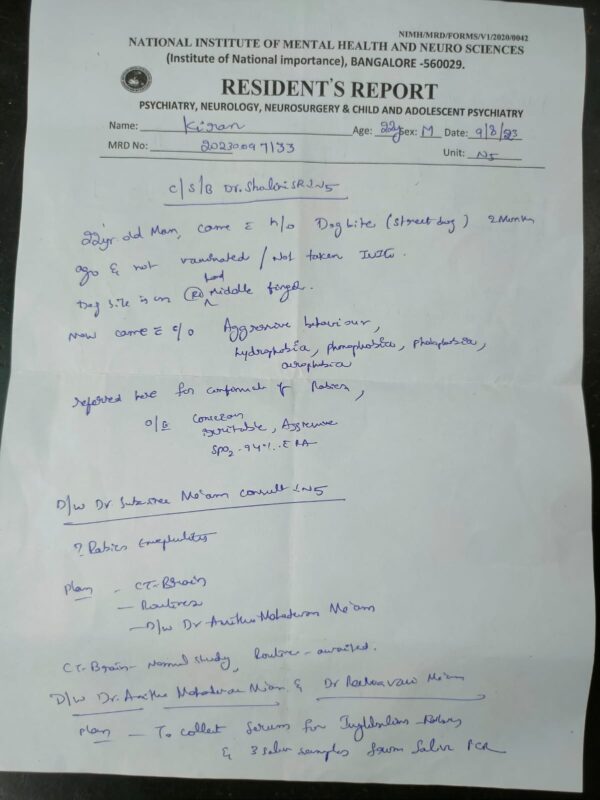 NIMH/MRD/FORMS/V1/2020/0042
NATIONAL INSTITUTE OF MENTAL HEALTH AND NEURO SCIENCES
(Institute of National importance), BANGALORE -560029.
RESIDENT'S REPORT
PSYCHIATRY, NEUROLOGY, NEUROSURGERY & CHILD AND ADOLESCENT PSYCHIATRY
Name: Kiran Age: 22y Sex: M Date: 9/8/23
MRD No: 20230097133 Unit: N5
C/S/B Dr. Shalini SR N5
22yr old Man, came c̄ h/o Dog bite (street dog) 2 Months
ago & not vaccinated / Not taken
Dog bite is on (Rt) hand Middle finger.
Now came c̄ c/o Aggressive behaviour,
hydrophobia, phonophobia, photophobia,
aerophobia
referred here for of Rabies,
O/E
irritable, Aggressive
SPO2 - 94% c̄ RA
D/W Dr Ma'am consult N5
? Rabies Encephalitis
Plan - CT-Brain
- Routines
- D/W Dr Anitha Mahadevan Ma'am
CT-Brain - Normal study, Routine - awaited.
D/W Dr. Anitha Mahadevan Mam & Dr Ma'am
Plan - To collect Serum for Rabies
& 3 saliva samples Saliva PCR